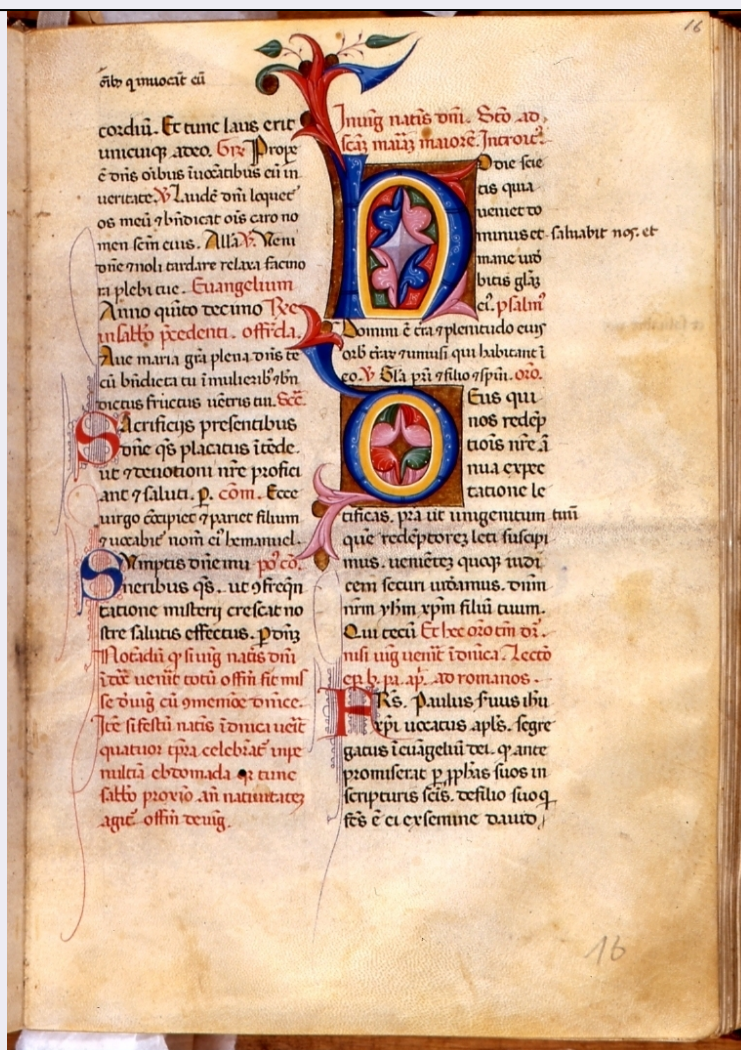 16
oĩbꝫ q̃ inuocãt eũ
cordiũ. Et tunc laus erit
unicuiqꝫ adeo. Gr̃. Prope
ẽ dñs oĩbus ĩuocãtibus eũ in
ueritate. ℣ Laudẽ dñi loquet̃
os meũ ⁊ bñdicat oĩs caro no
men sc̃m eius. Allã ℣. Veni
dñe ⁊ noli tardare relaxa facino
ra plebi tue. Euangelium
Anno quĩto decimo Re
in sabb̃o p̃cedenti. offr̃da.
Aue maria gr̃a plena dñs te
cũ bñdicta tu ĩ mulieribꝫ ⁊ bñ
dictus fructus uẽtris tui. Sec̃.
Sacrificijs presentibus
dñe q̃s placatus ĩtẽde.
ut ⁊ deuotioni nr̃e profici
ant ⁊ saluti. p. cõm. Ecce
uirgo cõcipiet ⁊ pariet filium
⁊ uocabit̃ nom̃ eiꝰ hemanuel.
Sumptis dñe mu po᷒ cõ.
neribus q̃s. ut ꝯfreq̃n
tatione misterij crescat no
stre salutis effectus. p dñꝫ
Notãdũ ꝙ si uig̃ natis̃ dñi
ĩ dc̃e uenit̃ totũ offm̃ fit mis
se d̃ uig̃ cũ ꝯmemõe dñice.
Itẽ si festũ natis̃ ĩ dñica uẽit
quatuor tp̃ra celebrãt̃ in pe
nultia ebdomada ꝙ tunc
sabb̃o proxio añ natiuitatẽ
agit̃ offm̃ de uig̃.
In uig̃ natis̃ dñi. Sc̃o ad
sc̃aꝫ mar̃aꝫ maiorẽ. Introit̃.
Hodie scie
tis quia
ueniet do
minus et saluabit nos. et
mane uid̃
bitis gl̃aꝫ
eiꝰ. psalmꝰ
Domini ẽ t̃ra ⁊ plenitudo eius
orb̃ t̃rarꝫ ⁊ uniũsi qui habitant ĩ
eo. ℣ Gl̃a pr̃i ⁊ filio ⁊ sp̃ui. or̃o.
Deus qui
nos redẽp
tiõis nr̃e ã
nua expec
tatione le
tificas. pr̃a ut unigenitum tuũ
quẽ redẽptorẽ leti suscipi
mus. uenientẽ quoqꝫ iudi
cem securi uideamus. dñm
nr̃m yh̃m xp̃m filiũ tuum.
Qui tecũ Et hec or̃o tm̃ dr̃.
nisi uig̃ uenit̃ ĩ dñica. Lectõ
ep̃. b̃. pa. ap̃. ad romanos.
FRS̃. Paulus s̃uus ihũ
xp̃i uocatus apl̃s. segre
gatus ĩ euãgeliũ dei. q̃ ante
promiserat p pp̃has suos in
scripturis sc̃is. de filio suo q̃
fc̃s ẽ ei ex semine dauid,
16